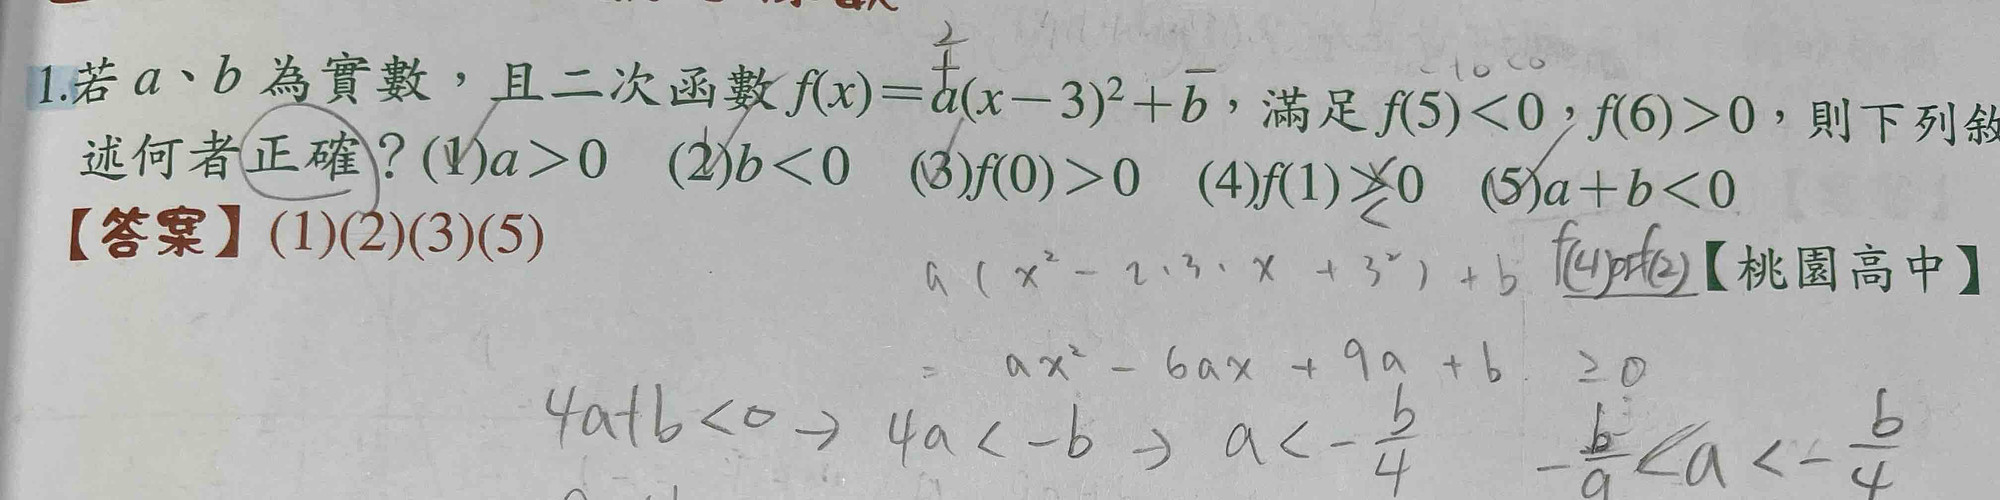 1.若 a、b 為實數，且二次函數 f(x)=a(x−3)²+b，滿足 f(5)<0，f(6)>0，則下列敘
述何者正確？(1)a>0 (2)b<0 (3)f(0)>0 (4)f(1)>0 (5)a+b<0
【答案】(1)(2)(3)(5)
a(x²−2·3·x+3²)+b f(4)or f(2)【桃園高中】
= ax²−6ax+9a+b ≥0
4a+b<0→4a<−b→a<−b/4 −b/9<a<−b/4